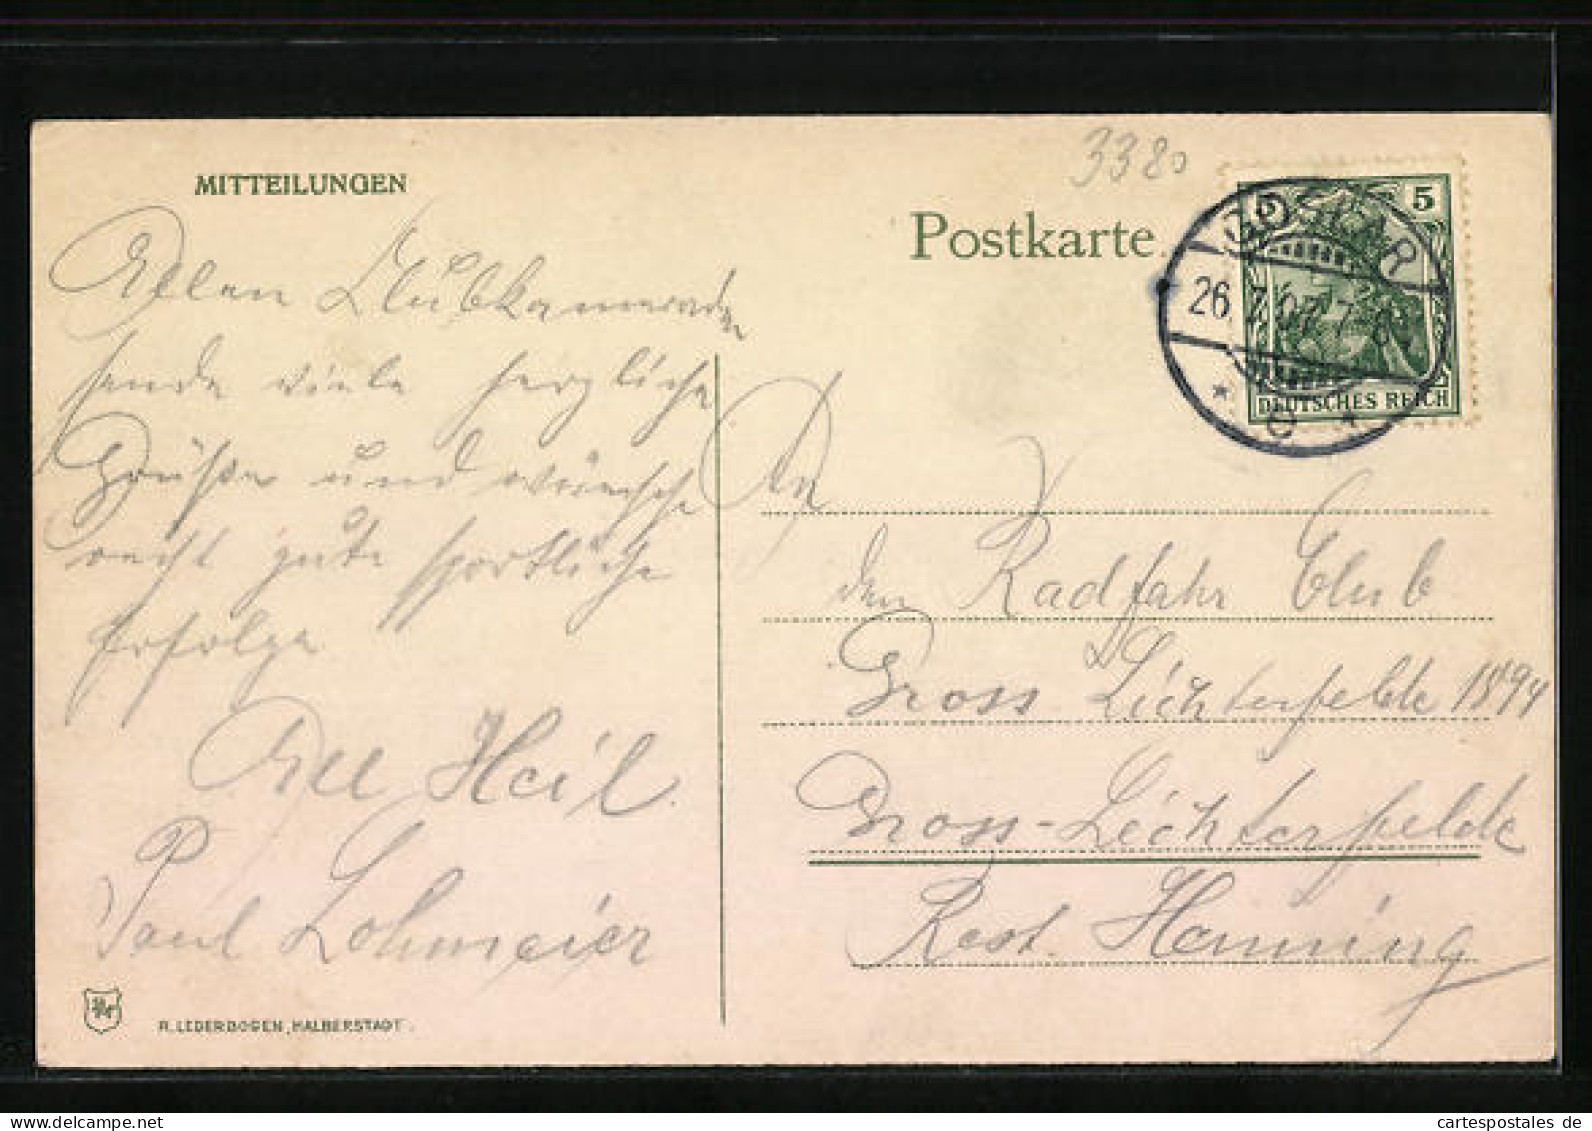 3380
MITTEILUNGEN
Postkarte
5
GOSLAR
26.7.07. 7-8
DEUTSCHES REICH
Allen Klubkameraden
sende viele herzliche
Grüße und wünsche
recht gute sportliche
Erfolge
All Heil
Paul Lohmeier
An
den Radfahr Club
Gross Lichterfelde 1894
Gross-Lichterfelde
Rest. Henning
R. LEDERBOGEN, HALBERSTADT.
cartespostales de